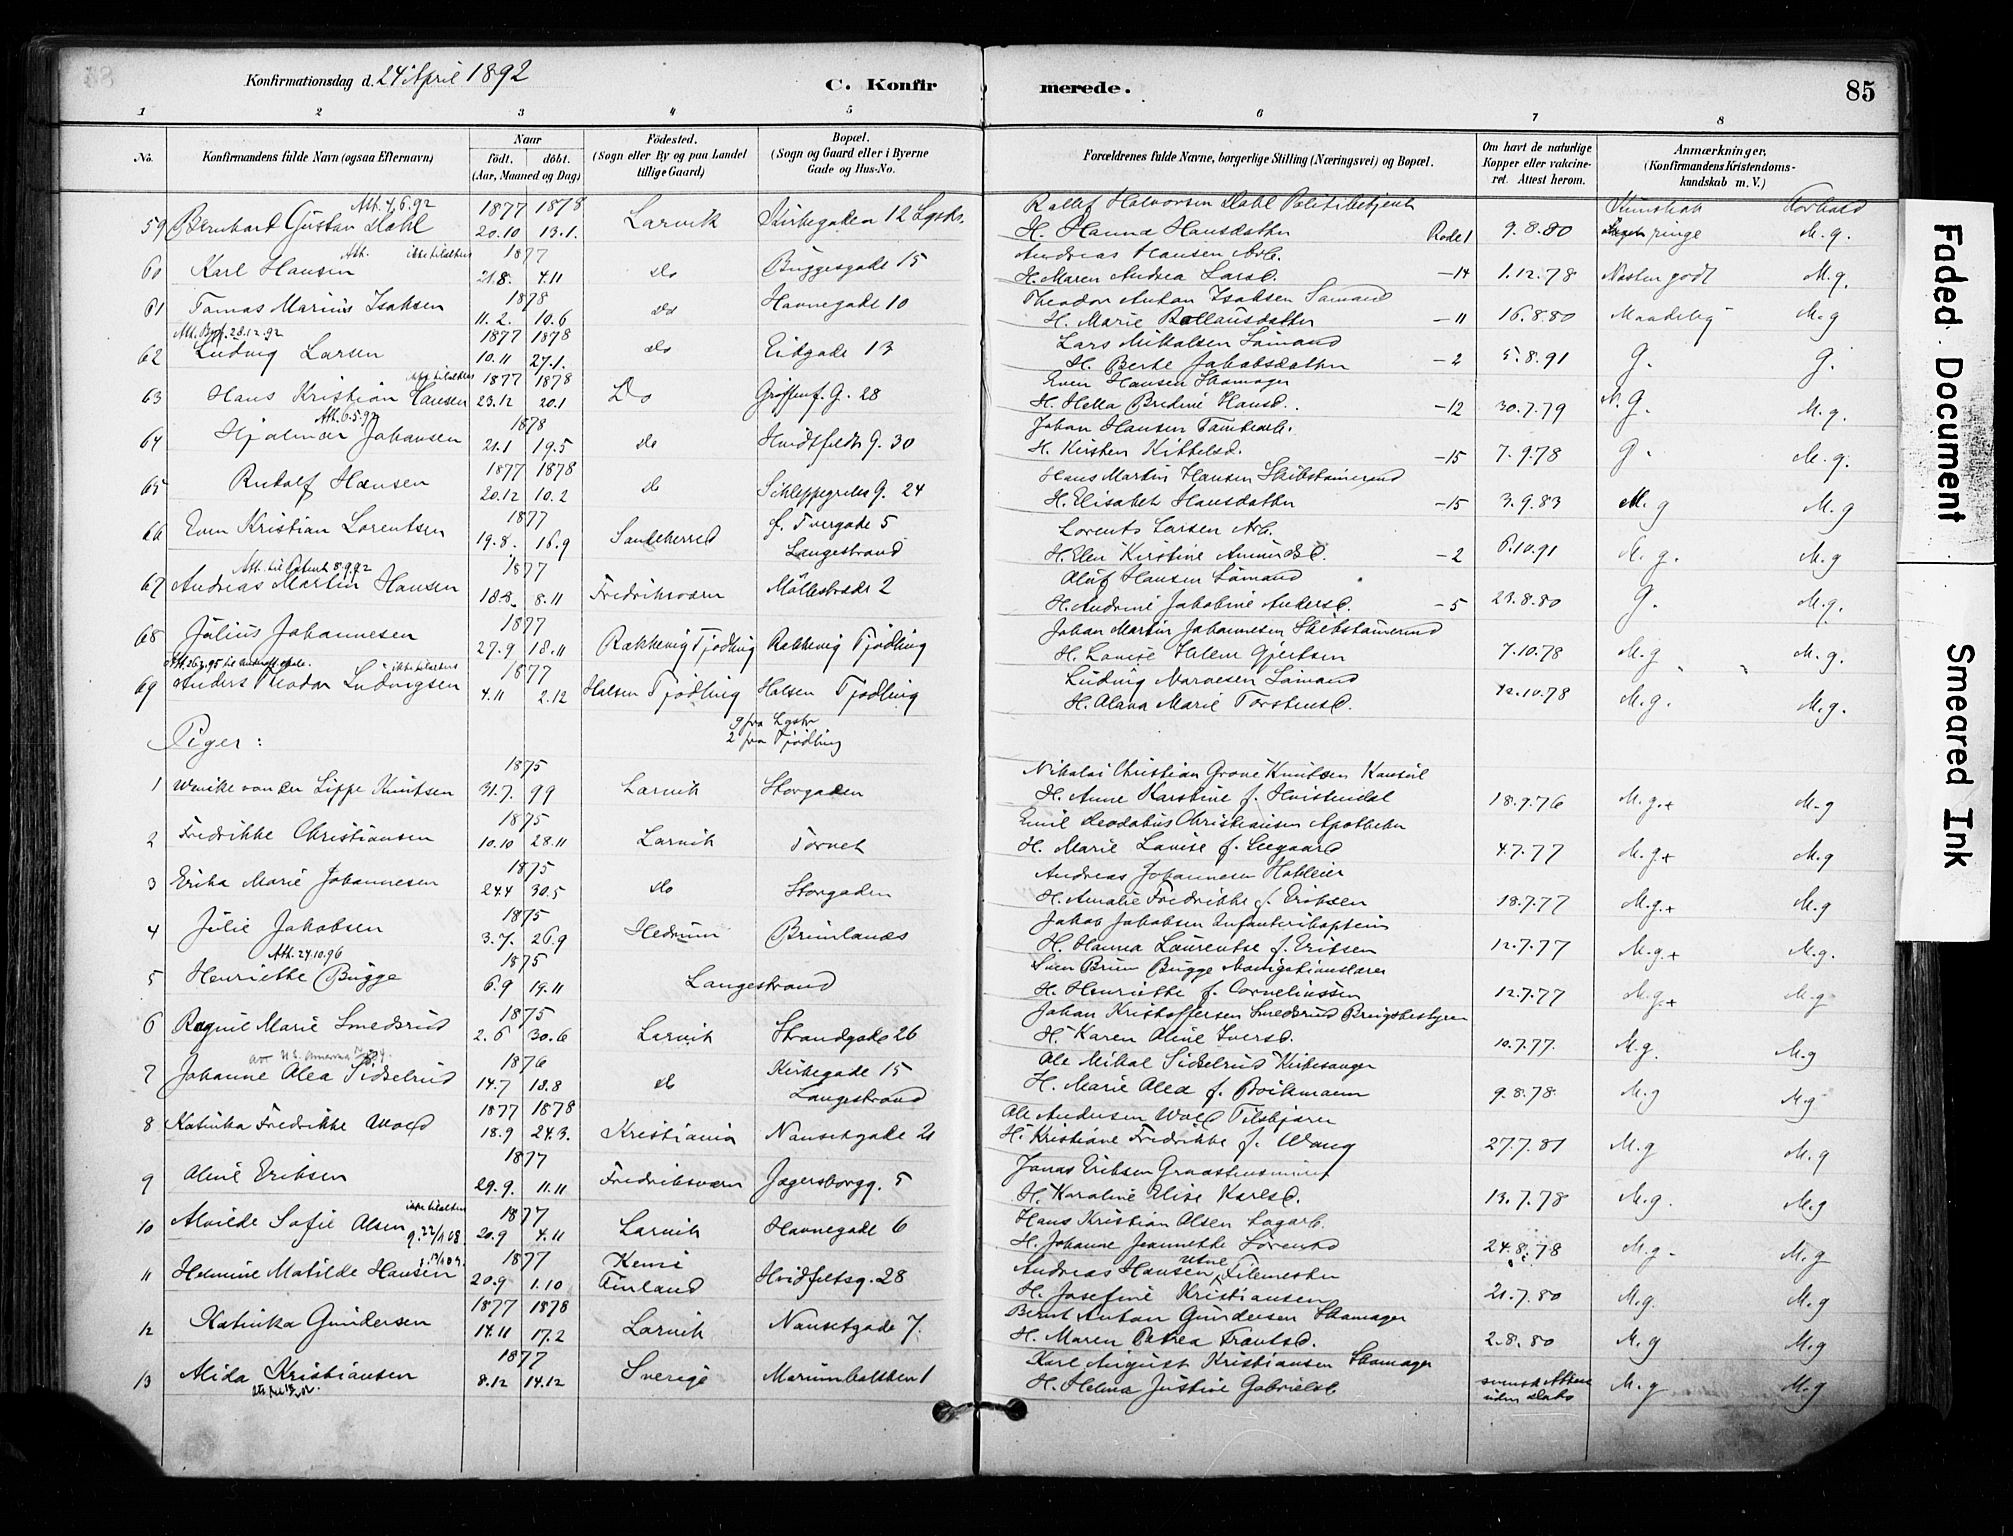 Konfirmationsdag d. 24 April 1892
C. Konfirmerede.
85
1 2 3 4 5 6 7 8
No.
Konfirmandens fulde Navn (ogsaa Efternavn)
Naar
født. døbt.
(Aar, Maaned og Dag)
Fødested.
(Sogn eller By og paa Landet
tillige Gaard)
Bopæl.
(Sogn og Gaard eller i Byerne
Gade og Hus-No.
Forældrenes fulde Navne, borgerlige Stilling (Næringsvei) og Bopæl.
Om havt de naturlige
Kopper eller vakcine-
ret. Attest herom.
Anmærkninger,
(Konfirmandens Kristendoms-
kundskab m. V.)
Kundskab Forhold
Att. 4.6.92 1877 1878 Rollef Halvorsen Dahl Politibetjent
59 Bernhart Gustav Dahl 20.10 13.1. Larvik Kirkegaden 12 Lgstr. H. Hanna Hansdatter Rode 1 9.8.80 meget ringe M.g.
Att. ikke tilalters 1877 Andreas Hansen Arb.
60 Karl Hansen 21.8. 4.11 do Buggesgade 15 H. Maren Andrea Larsd. -14 1.12.78 Næsten godt M.g.
1878 Theodor Anton Isaksen Sømand
61 Tomas Marius Isaksen 11.2. 10.6 do Havnegade 10 H. Marie Rollausdatter -11 16.8.80 Maadelig M.g
1877 1878 Lars Mikalsen Sømand
62 Ludvig Larsen 10.11 27.1. do Eidgade 13 H. Berte Jakobsdatter -2 5.8.91 G. G.
ikke tilalters 1877 1878 Even Hansen Skomager
63 Hans Kristian Hansen 23.12 20.1 Do Griffenf. G. 28 H. Hella Bredine Hansd. -12 30.7.79 N.G. M.g.
Att. 6.5.92 1878 Johan Hansen Tømkarl.
64 Hjalmar Johansen 21.1 19.5 do Hvidtfeldts G. 30 H. Kirsten Kittelsd. -15 7.9.78 g. M.g.
1877 1878 Hans Martin Hansen Skibstømmermd
65 Rudolf Hansen 20.12 10.2 do Schleppegreles G. 24 H. Elisabeth Hansdatter -15 3.9.83 M.g M.g
1877 f. Tvergade 5 Lorents Larsen Arb.
66 Even Kristian Lorentsen 19.8. 16.9 Sandeherred Langestrand H. Elen Kirstine Amundsd. -2 6.10.91 M.g. M.g
Att. til Patent 8.9.92 1877 Oluf Hansen Sømand
67 Andreas Martin Hansen 18.8. 8.11 Fredriksværn Møllestræde 2 H. Andrine Jakobine Andersd. -5 23.8.80 G. M.g.
1877 Johan Martin Johannesen Skibstømmermd
68 Julius Johannesen 27.9 18.11 Rakkevig Tjødling Rakkevig Tjødling H. Lovise Helene Gjertsen 7.10.78 M.g M.g.
ikke tilalters 1877 Ludvig Narvesen Sømand
69 Anders Theodor Ludvigsen 4.11 2.12 Halsen Tjødling Halsen Tjødling H. Alava Marie Torstensd. 12.10.78 M.g. M.g.
9 fra Lgstr
Piger: 2 fra Tjødling
1875 Nikolai Christian Grove Knudsen Konsul
1 Wenike van der Lippe Knudsen 31.7. 9.9 Larvik Storgaden H. Anne Karstine f. Hvistendal 18.9.76 M.g.+ M.g
1875 Emil Deodatus Christiansen Apotheker
2 Fredrikke Christiansen 10.10 28.11 Larvik Torvet H. Marie Lovise f. Seegaard 4.7.77 M.g.+ M.g
1875 Andreas Johannesen Hoteleier
3 Erika Marie Johannesen 24.4 30.5 do Storgaden H. Amalie Fredrikke f. Eriksen 18.7.77 M.g.+ M.g
1875 Jakob Jakobsen Infanterikaptein
4 Julie Jakobsen 3.7. 26.9 Hedrum Brimlanes H. Hanna Laurentse f. Eriksen 12.7.77 M.g.+ M.g.
Att. 24.10.96 1875 Sven Brun Bugge Navigationslærer
5 Henriette Bugge 6.9 19.11 Langestrand H. Henriette f. Corneliussen 12.7.77 M.g.+ M.g
1875 Johan Kristoffersen Smedsrud Brugsbestyrer
6 Ragnil Marie Smedsrud 2.6 30.6 Larvik Strandgade 26 H. Karen Oline Iversd. 10.7.77. M.g. M.g
1876 Kirkegade 15 Ole Mikal Sidselrud Kirkesanger
7 Johanne Olea Sidselrud 14.7 13.8 do Langestrand H. Marie Olea f. Boikmann 9.8.78. M.g M.g
1877 1878 Ole Andersen Wold
8 Katinka Fredrikke Wold 18.9 24.3. Kristiania Nansetgade 21 H. Kristiane Fredrikke f. Wang 27.7.81 M.g M.g
1877 Jonas Eriksen Graastensminer
9 Oline Eriksen 29.9. 11.11 Fredriksværn Jegersborgg. 5 H. Karoline Elise Karlsd. 13.7.78 M.g. M.g
ikke tilalters 1877 Hans Kristian Olsen Logarb.
10 Alvilde Sofie Olsen g. 22/1 08 20.9 4.11 Larvik Havnegade 6 H. Johanne Jeannette Sørensd 24.8.78 M.g. M.g
1877 Kemi Andreas Hansen Utne Filemester
11 Helmine Matilde Hansen 20.9 1.10 Finland Hvidfeltsg. 28 H. Josefine Kristiansen 21.7.80 M.g. M.g
1877 1878 Bernt Anton Gundersen Skomager
12 Katinka Gundersen 14.11 17.2 Larvik Nansetgade 7. H. Maren Petrea Frantsd. 2.8.80 M.g M.g
1877 Karl August Kristiansen Skomager
13 Alida Kristiansen 8.12 14.12 Sverige Marumbakken 1 H. Helma Justine Gabrielsd. svensk Attest M.g M.g
uden Dato
Faded Document
Smeared Ink